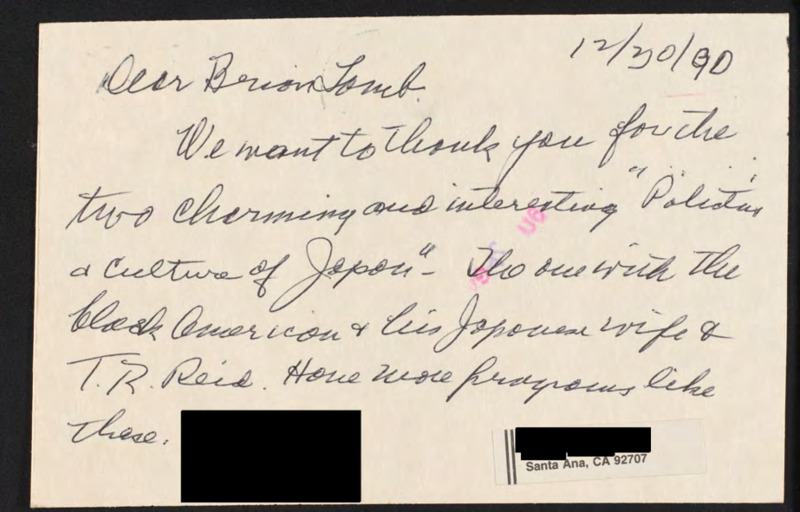 12/30/90
Dear Brian Lamb.
We want to thank you for the
two charming and interesting "Politics
& Culture of Japan" - The one with the
black American & his Japanese wife &
T.R. Reid. Have more programs like
these.
Santa Ana, CA 92707